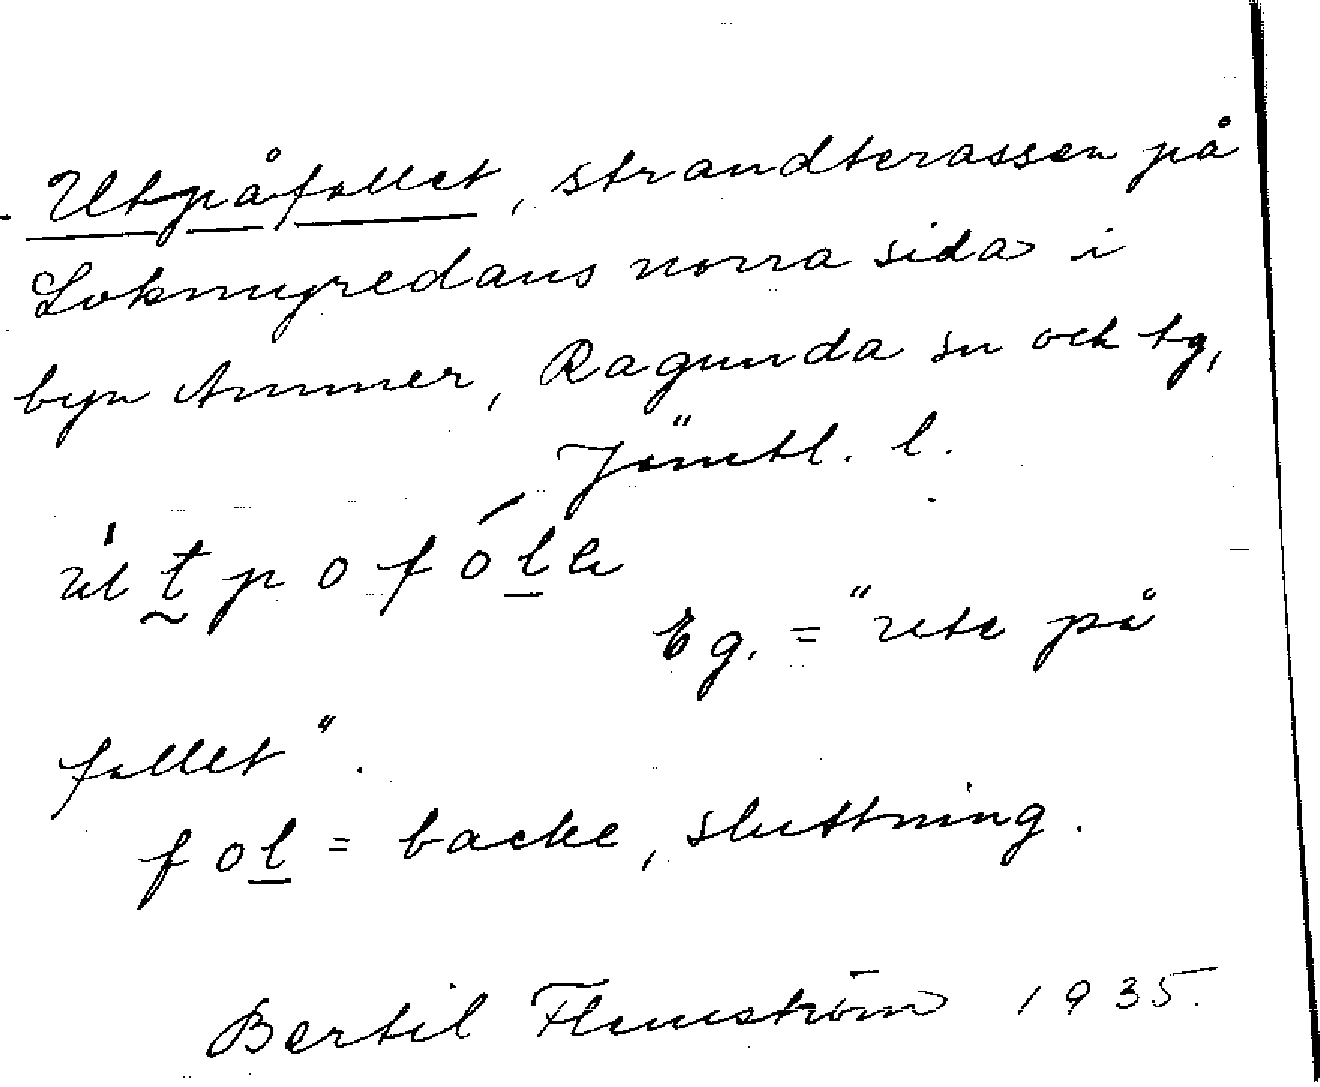 Utpåfallet, strandterassen på
Lokmygredans norra sida i
byn Ammer, Ragunda sn och tg,
Jämtl. l.
Eg. = "ute på
fallet".
fol = backe, sluttning.
Bertil Flemström 1935.